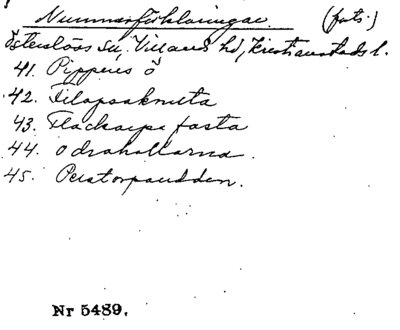 Nummerförklaringar. (forts.)
Österslövs sn, Villands hd, Kristianstads l.
41. Pippens ö
42.
43. fasta
44. Odrahallarna.
45.
Nr 5489.